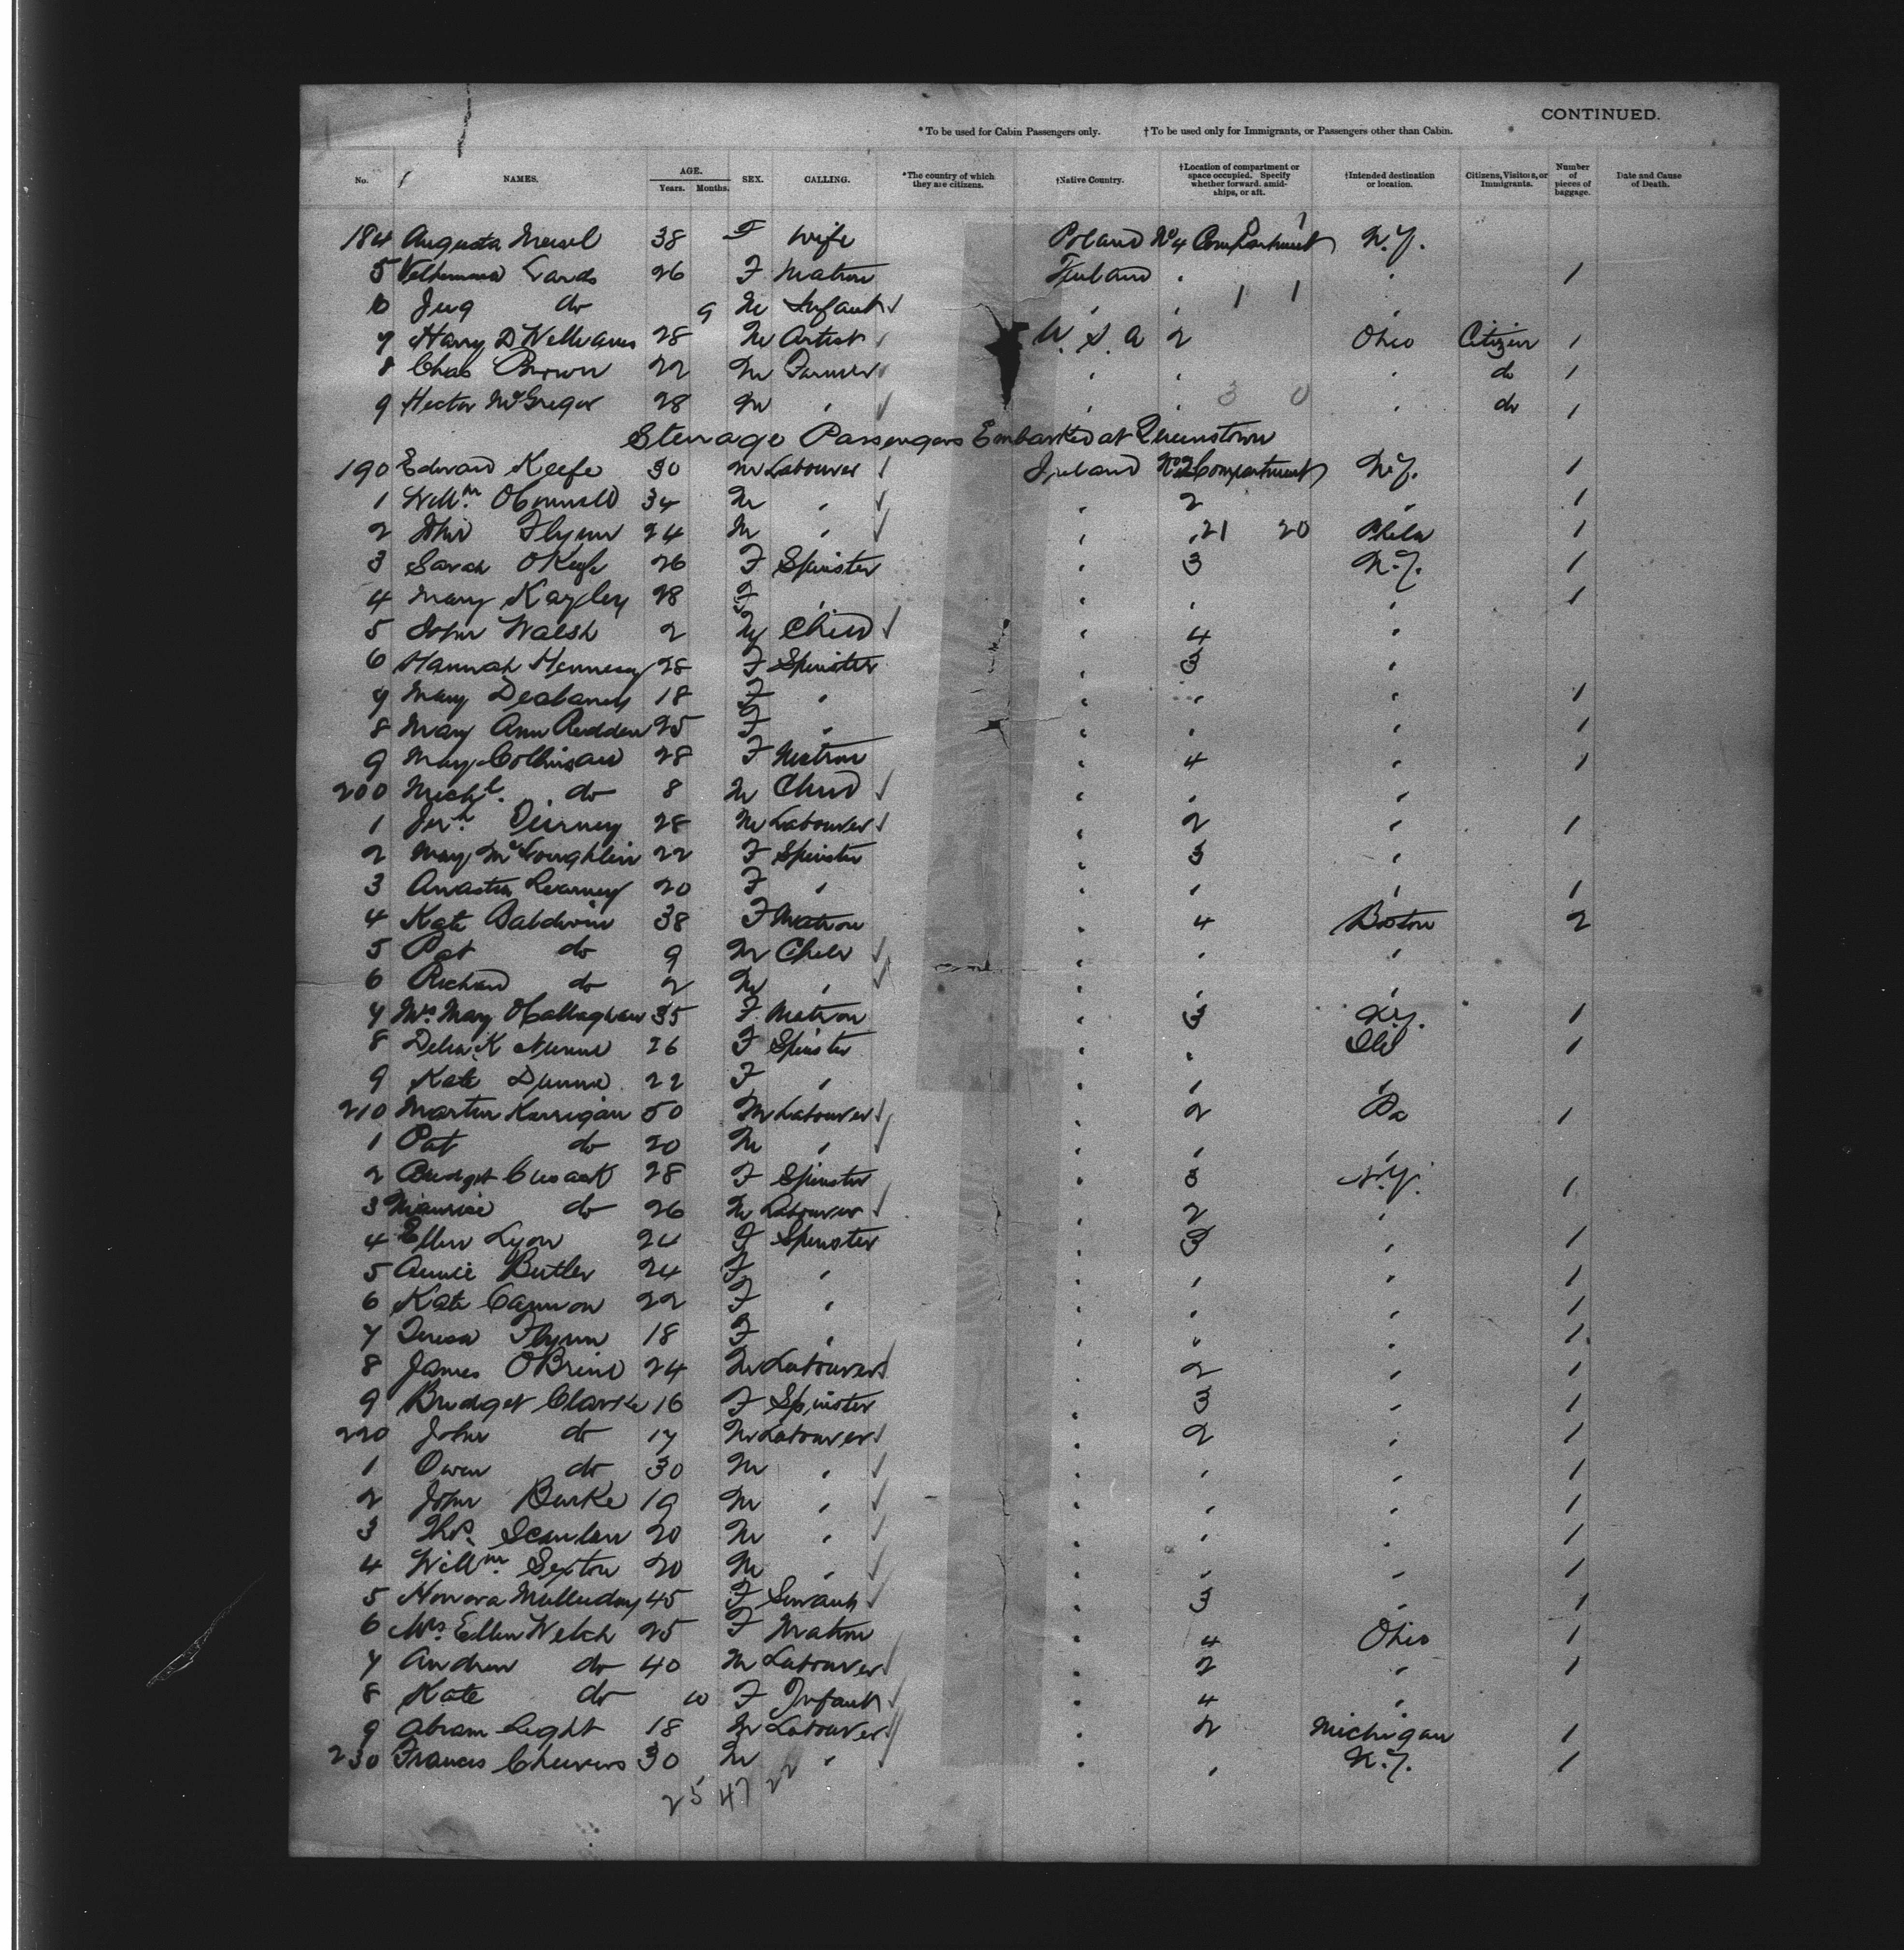 CONTINUED.
*To be used for Cabin Passengers only. †To be used only for Immigrants, or Passengers other than Cabin.
No. NAMES. AGE. Years. Months. SEX. CALLING. *The country of which they are citizens. †Native Country. †Location of compartment or space occupied. Specify whether forward, amidships, or aft. †Intended destination or location. Citizens, Visitors, or Immigrants. Number of pieces of baggage. Date and Cause of Death.
184 Augusta 38 F Wife Poland No 4 Compartment N.Y.
5 26 F Matron Finland " " 1
6 do 9 M Infant " " 1 1 "
7 Harry D Williams 28 M Artist U. S. A 2 Ohio Citizen 1
8 Chas Brown 22 M Farmer " " " do 1
9 Hector McGregor 28 M " " " 3 0 " do 1
Steerage Passengers Embarked at Queenstown
190 Edward Keefe 30 M Labourer Ireland No 2 Compartment N.Y. 1
1 Willm. 34 M " " 2 " 1
2 John Flynn 24 M " " " 21 20 Phila 1
3 Sarah OKeefe 26 F Spinster " 3 N.Y. 1
4 Mary Kayley 28 F " " " " 1
5 John Walsh 2 M Child " 4 "
6 Hannah Hennesy 28 F Spinster " 3 "
7 Mary 18 F " " " " 1
8 Mary Ann Redden 25 F " " " " 1
9 Mary 28 F Matron " 4 " 1
200 Michl. do 8 M Child " " "
1 Jerh. 28 M Labourer " 2 " 1
2 Mary McLoughlin 22 F Spinster " 3 "
3 Kearney 20 F " " " " 1
4 Kate Baldwin 38 F Matron " 4 Boston 2
5 Pat do 9 M Child " " "
6 Richard do 2 M " " " "
7 Mrs Mary OCallaghan 35 F Matron " 3 N.Y. 1
8 Delia K 26 F Spinster " " 1
9 Kate Dunne 22 F " " " "
210 Martin Kerrigan 50 M Labourer " 2 Pa 1
1 Pat do 20 M " " " "
2 Bridget Cusack 28 F Spinster " 3 N.Y. 1
3 Maurice do 26 M Labourer " 2 "
4 Ellen Lyon 24 F Spinster " 3 " 1
5 Annie Butler 24 F " " " " 1
6 Kate Cannon 22 F " " " " 1
7 Teresa Flynn 18 F " " " " 1
8 James OBrine 24 M Labourer " 2 " 1
9 Bridget Clarke 16 F Spinster " 3 " 1
220 John do 17 M Labourer " 2 " 1
1 Owen do 30 M " " " " 1
2 John Burke 19 M " " " " 1
3 Thos. Scanlan 20 M " " " " 1
4 Willm. Sexton 20 M " " " " 1
5 Honora 45 F Servant " 3 " 1
6 Mrs. Ellen Welch 25 F Matron " 4 Ohio 1
7 Andrew do 40 M Labourer " 2 " 1
8 Kate do 10 F Infant " 4 "
9 Abram Light 18 M Labourer " 2 Michigan 1
230 Francis Cheevers 30 M " " " N.Y. 1
25 47 22